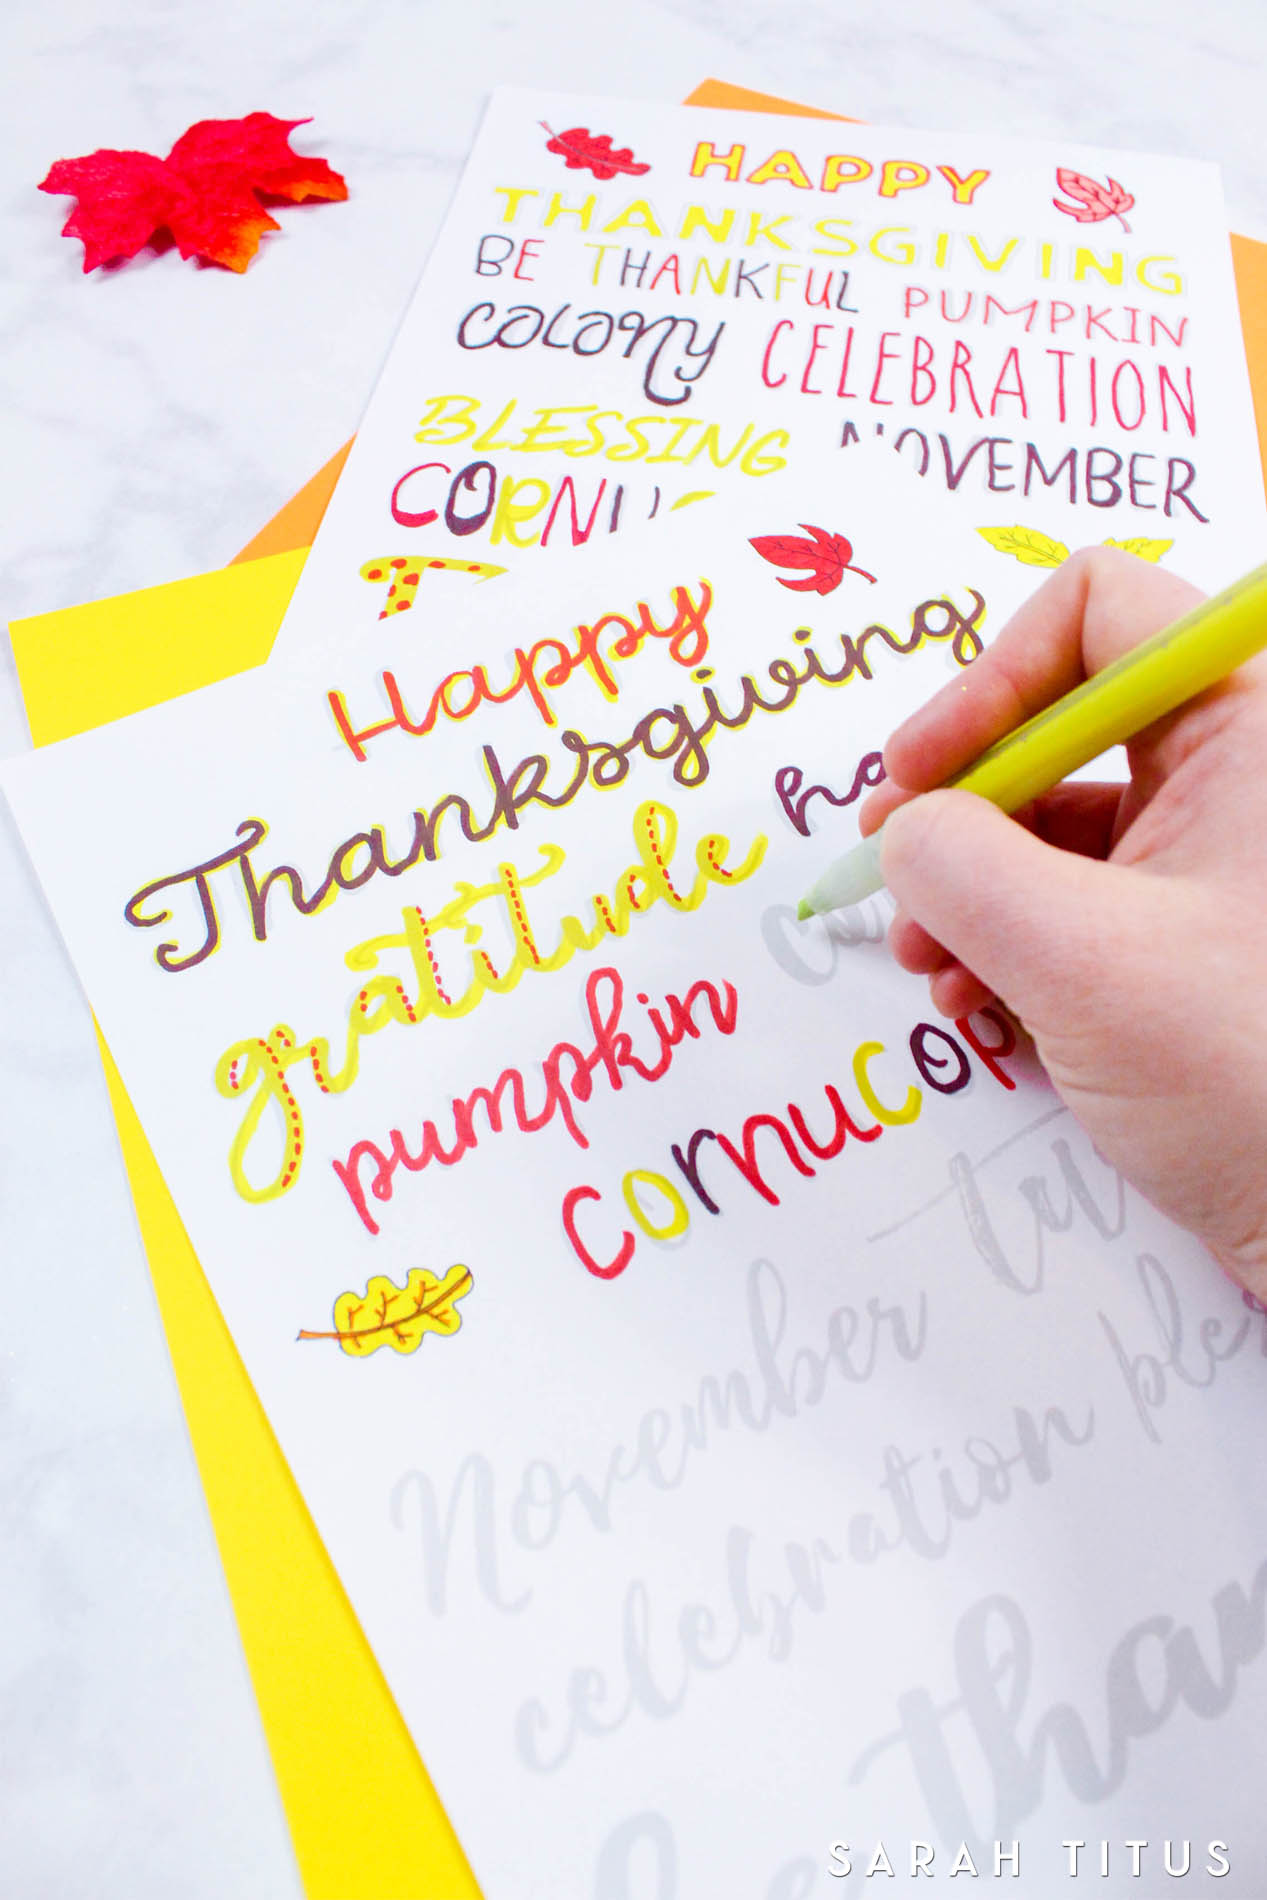 HAPPY
THANKSGIVING
BE THANKFUL PUMPKIN
COLONY CELEBRATION
BLESSING NOVEMBER
Happy
Thanksgiving
gratitude
pumpkin
November
celebration
SARAH TITUS